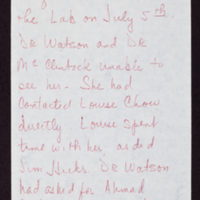 the Lab on July 5th.
DR Watson and DR
McClintock unable to
see her. She had
contacted Louise Chow
directly. Louise spent
time with her as did
Jim Hicks. DR Watson
had asked for Ahmad